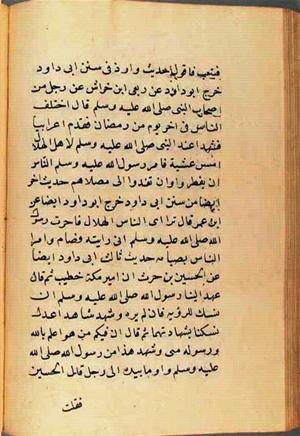 فيتعب فاقول الحديث وارد في سنن ابى داود
خرج ابو داود عن ربعى ابن خراش عن رجل من
اصحاب النبى صلى الله عليه وسلم قال اختلف
الناس فى اخر يوم من رمضان فقدم اعرابيا
فشهدا عند النبى صلى الله عليه وسلم لاهل الهلال
امس عشية فامر رسول الله صلى الله عليه وسلم الناس
ان يفطروا وان تغدوا الى مصلاهم حديث اخر
ايضا من سنن ابى داود خرج ابو داود ايضا عن
ابن عمر قال تراى الناس الهلال فاخبرت رسول
الله صلى الله عليه وسلم انى رايته فصام وامر
الناس بصيامه حديث ثالث ابى داود ايضا
عن الحسين بن حرث ان امير مكة خطب ثم قال
عهد الينا رسول الله صلى الله عليه وسلم ان
ننسك للرؤية فان لم يره وشهد شاهدا عدل
نسكنا بشهادتهما ثم قال ان فيكم من هو اعلم بالله
ورسوله منى وشهد هذا من رسول الله صلى الله
عليه وسلم واوما بيده الى رجل قال الحسين
فقلت